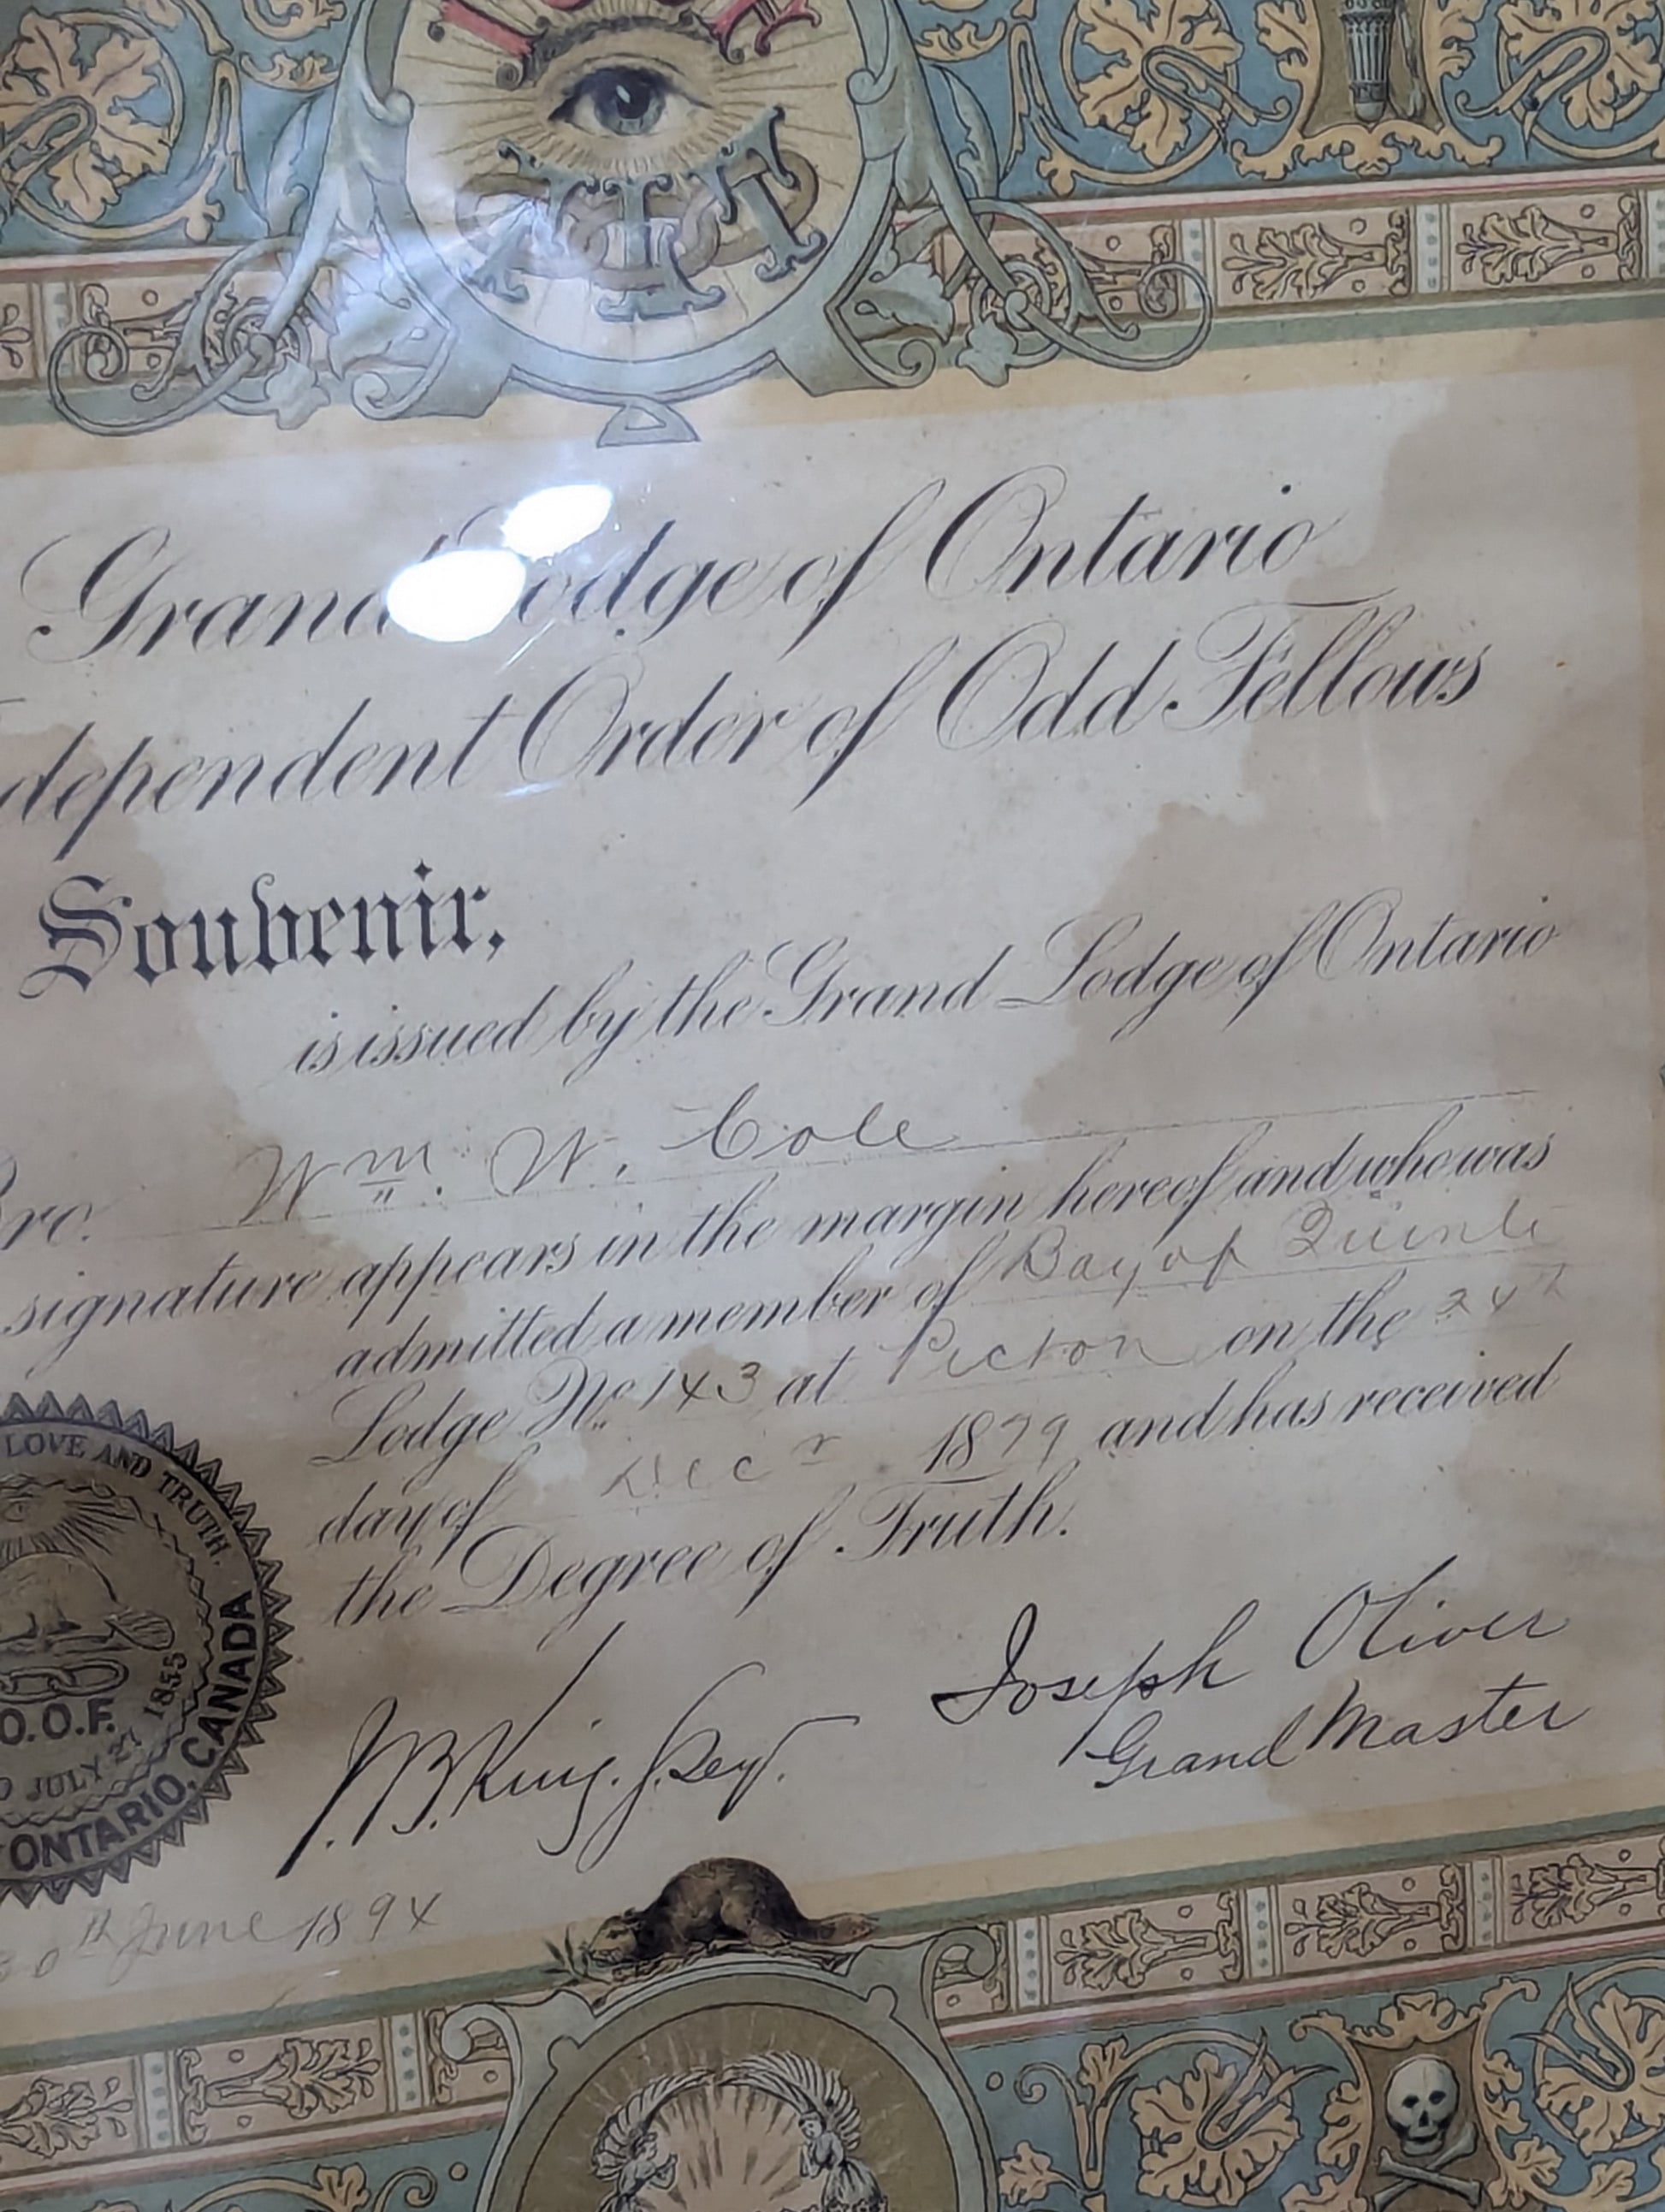 Grand Lodge of Ontario
dependent Order of Odd Fellows
Souvenir,
is issued by the Grand Lodge of Ontario
Bro. Wm. W. Cole
signature appears in the margin hereof and who was
admitted a member of Bay of Quinte
Lodge No. 143 at Picton on the 24th
day of Decr 1879 and has received
the Degree of Truth.
LOVE AND TRUTH.
O.O.F.
JULY 27 1855
ONTARIO, CANADA
J.B. King. G. Secy.
Joseph Oliver
Grand Master
30th June 1894